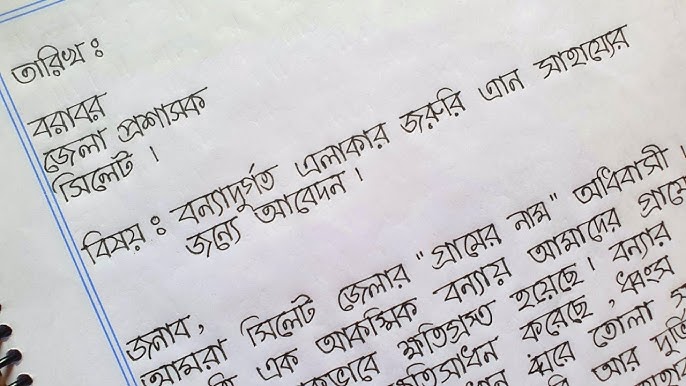 তারিখ :
বরাবর
জেলা প্রশাসক
সিলেট ।
বিষয় : বন্যাদুর্গত এলাকার জরুরি ত্রান সাহায্যের
জন্যে আবেদন ।
জনাব ,
আমরা সিলেট জেলার "গ্রামের নাম" অধিবাসী ।
এক আকস্মিক বন্যায় আমাদের গ্রামে
ক্ষতিগ্রস্ত হয়েছে । বন্যার
করেছে , ধ্বংস
ঘরে তোলা
আর